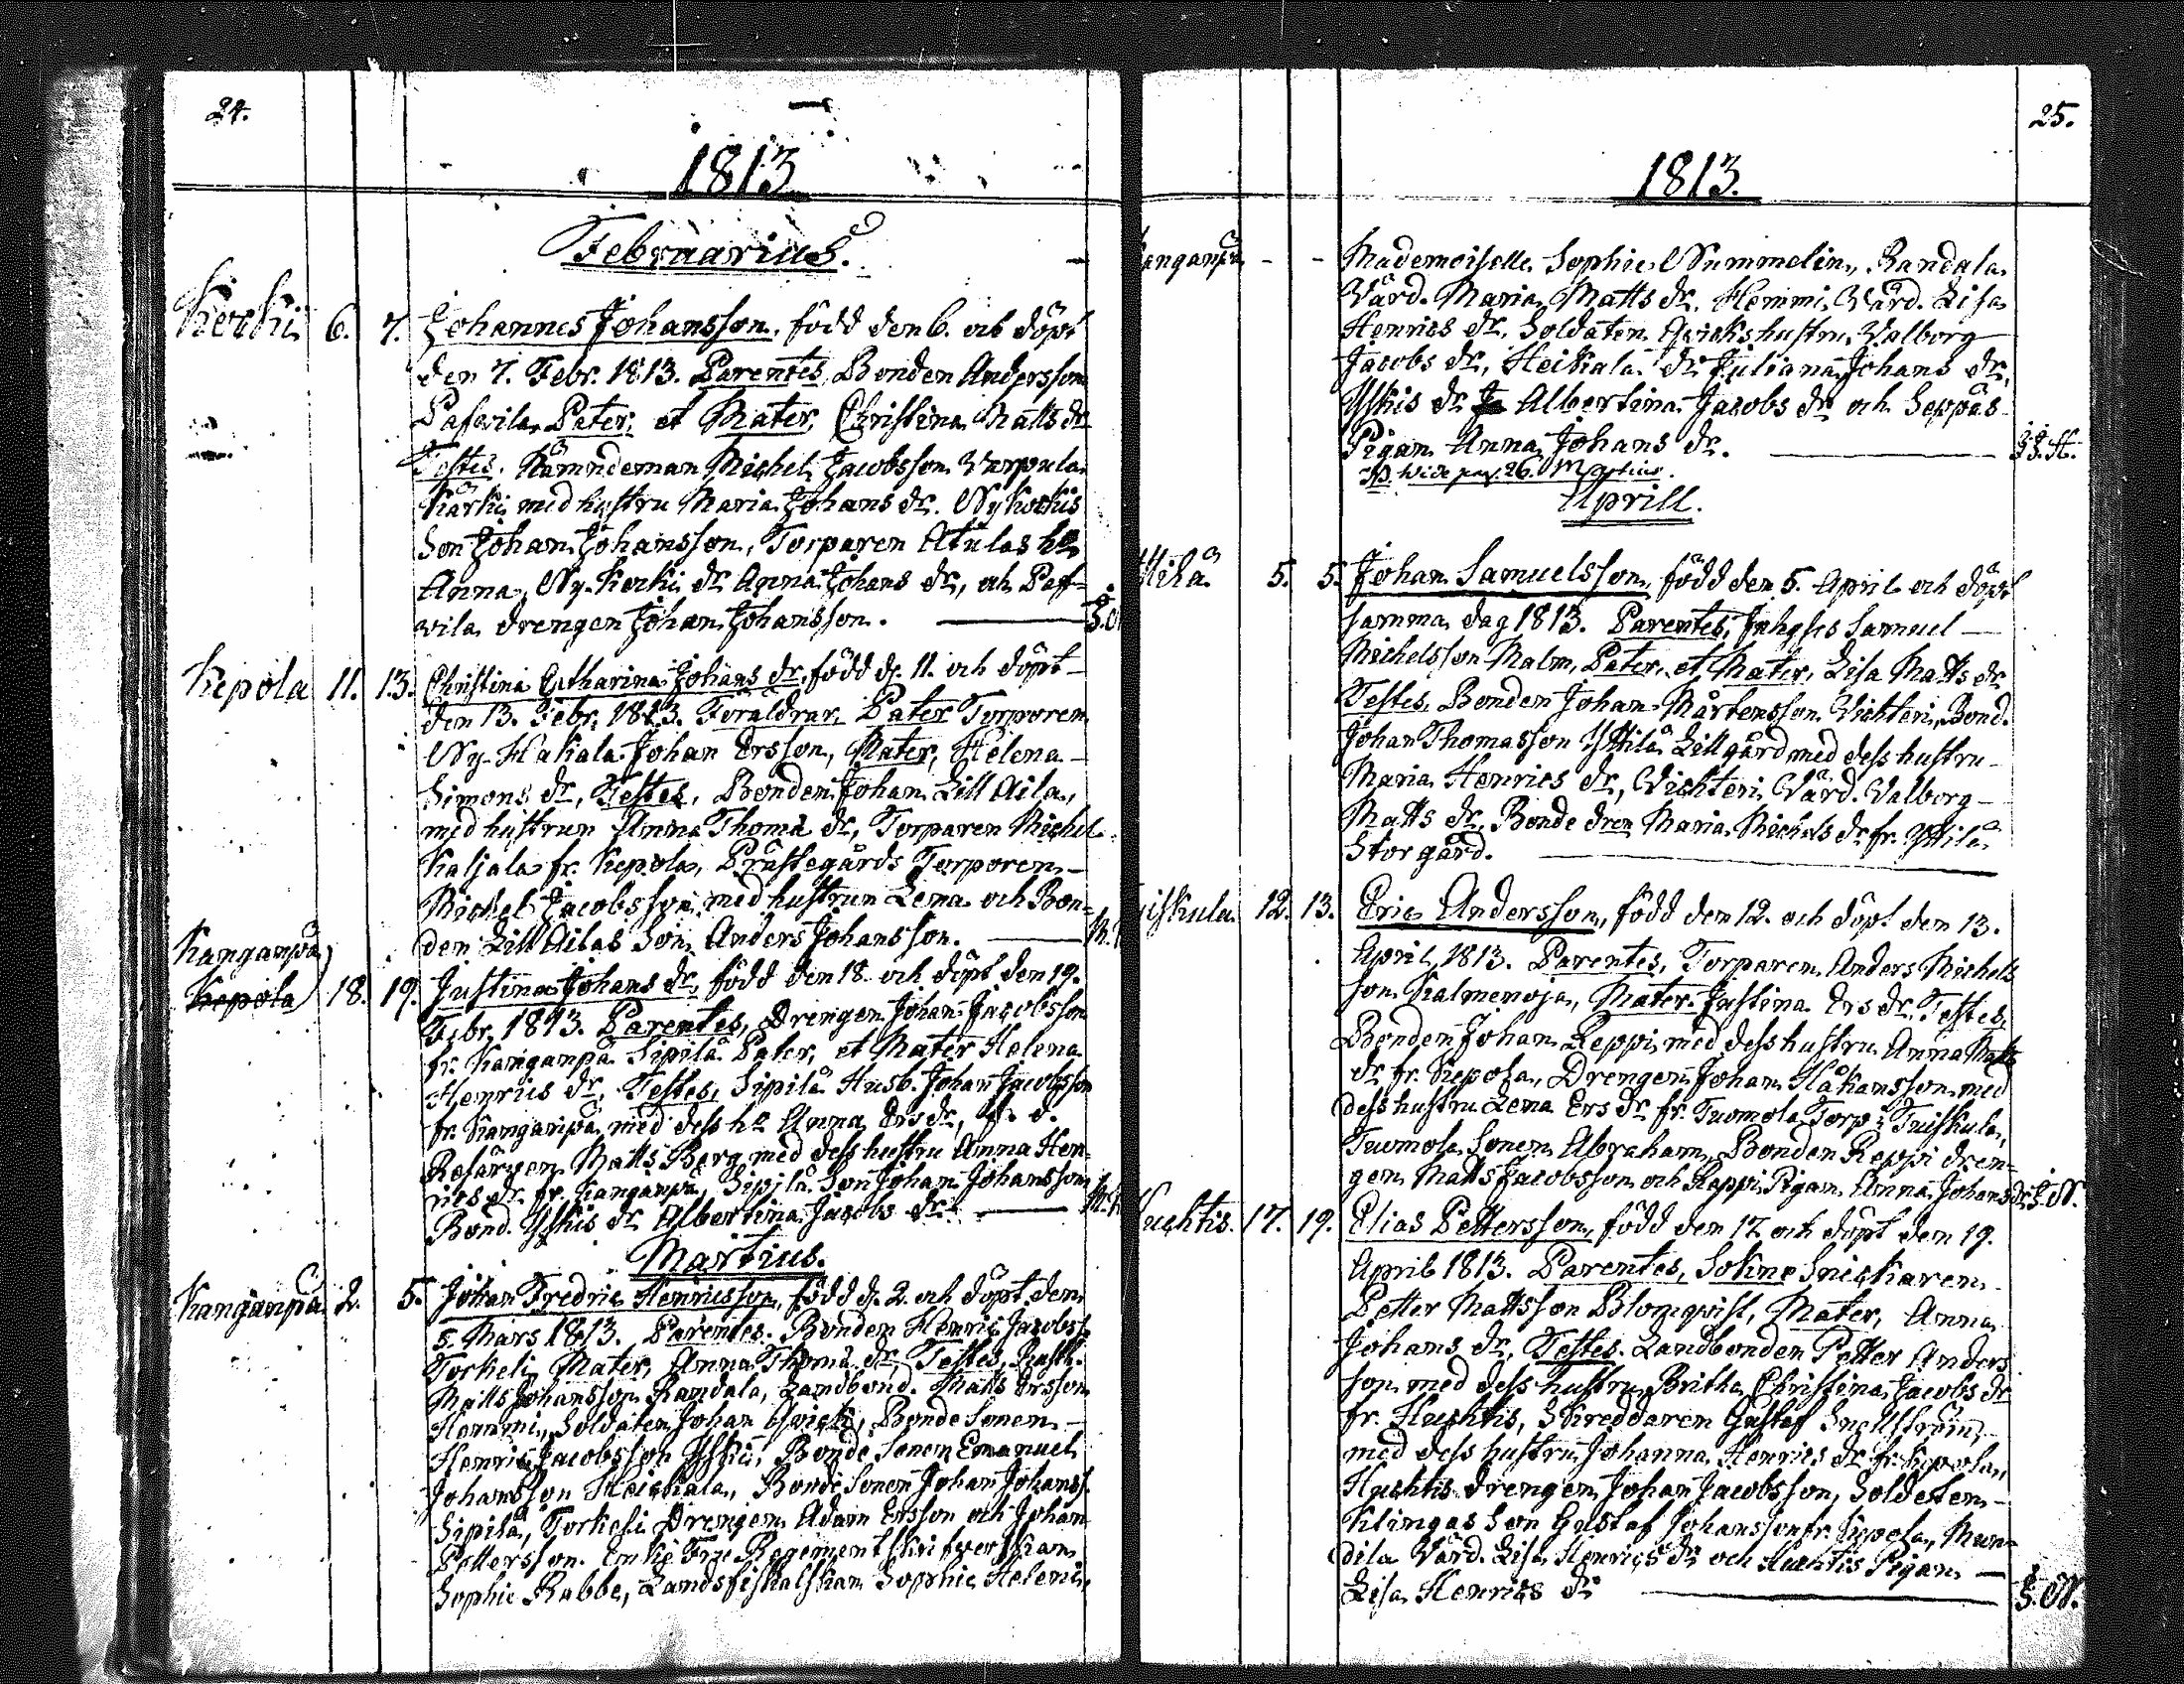 24.
1813
Februarius.
Kerki 6. 7. Johannes Johansson, född den 6. och döpt
den 7. Febr. 1813. Parentes, Bonden Andersson
Pafvila, Pater, et Mater, Christina Matts dr
Testes, Nämndeman Michel Jacobsson
Kärki med hustru Maria Johans dr. Ny Kerkis
Son Johan Johansson, Torparen Atulas ho
Anna, Ny-Kerki dr Anna Johans dr, och Paf-
vila drengen Johan Johansson.
Kepola 11. 13. Christina Catharina Johans dr, född d. 11. och döpt
den 13. Febr. 1813. Föräldrar, Pater Torparen
Ny-Hakala Johan Ersson, Mater, Helena
Simons dr, Testes, Bonden Johan Lill Aila,
med hustrun Anna Thoma dr, Torparen Michel
Kaljala fr. Kepola, Prästegårds Torparen
Michel Jacobsson med hustrun Lena och Bon-
den Lill Ailas Son Anders Johansson.
Kanganpä
Kepola 18. 19. Justina Johans dr, född den 18. och döpt den 19.
Febr. 1813. Parentes, Drengen Johan Jacobsson
fr. Kanganpä Sipilä Pater, et Mater Helena
Henrics dr, Testes, Sipilä Husb. Johan Jacobsson
fr. Kanganpä med dess ho Anna Ers dr,
Matts Berg med dess hustru Anna Hen-
rics dr fr. Kanganpä, Sipilä Son Johan Johansson
Bond. Yskis dr Albertina Jacobs dr
Martius.
Kanganpä 2. 5. Johan Fredric Henricsson, född d. 2. och döpt den
5. Mars 1813. Parentes. Bonden Henric Jacobss.
Torkeli, Mater, Anna Thoma dr, Testes,
Matts Johansson Randala, Landbond. Matts Ersson
Hemmi, Soldaten Johan Qvick, Bonde Sonen
Henric Jacobsson Yskis, Bonde Sonen Emanuel
Johansson Heickala, Bonde Sonen Johan Johanss.
Sipilä, Torkeli Drengen Adam Ersson och Johan
Pettersson. Regementskrifverskan
Sophie Rabbe, Landsfiskalskan Sophie Helenie,
25.
1813.
Kanganpä - - Mademoiselle Sophie Nummelin, Randala
Värd. Maria Matts dr, Hemmi Värd. Lisa
Henrics dr, Soldaten Qvicks hustru Valborg
Jacobs dr, Heikala dr Juliana Johans dr,
Yskis dr Albertina Jacobs dr och Seppäs
Pigan Anna Johans dr.
NB. Vide pag. 26. Martius.
Aprill.
5. 5. Johan Samuelsson, född den 5. April och döpt
samma dag 1813. Parentes, Inhyses Samuel
Michelsson Malm, Pater, et Mater, Lisa Matts dr
Testes, Bonden Johan Mårtensson Vichteri, Bond.
Johan Thomasson Yttilä Lillgård med dess hustru
Maria Henrics dr, Vichteri Värd. Valborg
Matts dr, Bonde dren Maria Michels dr fr. Yttilä
Storgård.
12. 13. Eric Andersson, född den 12. och döpt den 13.
April 1813. Parentes, Torparen Anders Michels
son Kalmenoja, Mater Justina Ers dr, Testes,
Bonden Johan Reppi med dess hustru Anna Matts
dr fr. Kepola, Drengen Johan Håkansson med
dess hustru Lena Ers dr fr. Tuomola Torp i Tuiskula,
Tuomola Sonen Abraham, Bonden Reppi dren-
gen Matts Jacobsson och Reppi Pigan Anna Johans dr
Huchtis. 17. 19. Elias Pettersson, född den 17. och döpt den 19.
April 1813. Parentes, Sokne Snickaren
Petter Mattsson Blomqvist, Mater, Anna
Johans dr, Testes Landbonden Petter Anders
son med dess hustru Britha Christina Jacobs dr
fr. Huchtis, Skreddaren Gustaf Snellström
med dess hustru Johanna Henrics dr fr. Kepola,
Huchtis drengen Johan Jacobsson, Soldaten
Klingas Son Gustaf Johansson fr. Kepola, Mun-
dila Värd. Lisa Henrics dr och Huchtis Pigan
Lisa Henrics dr